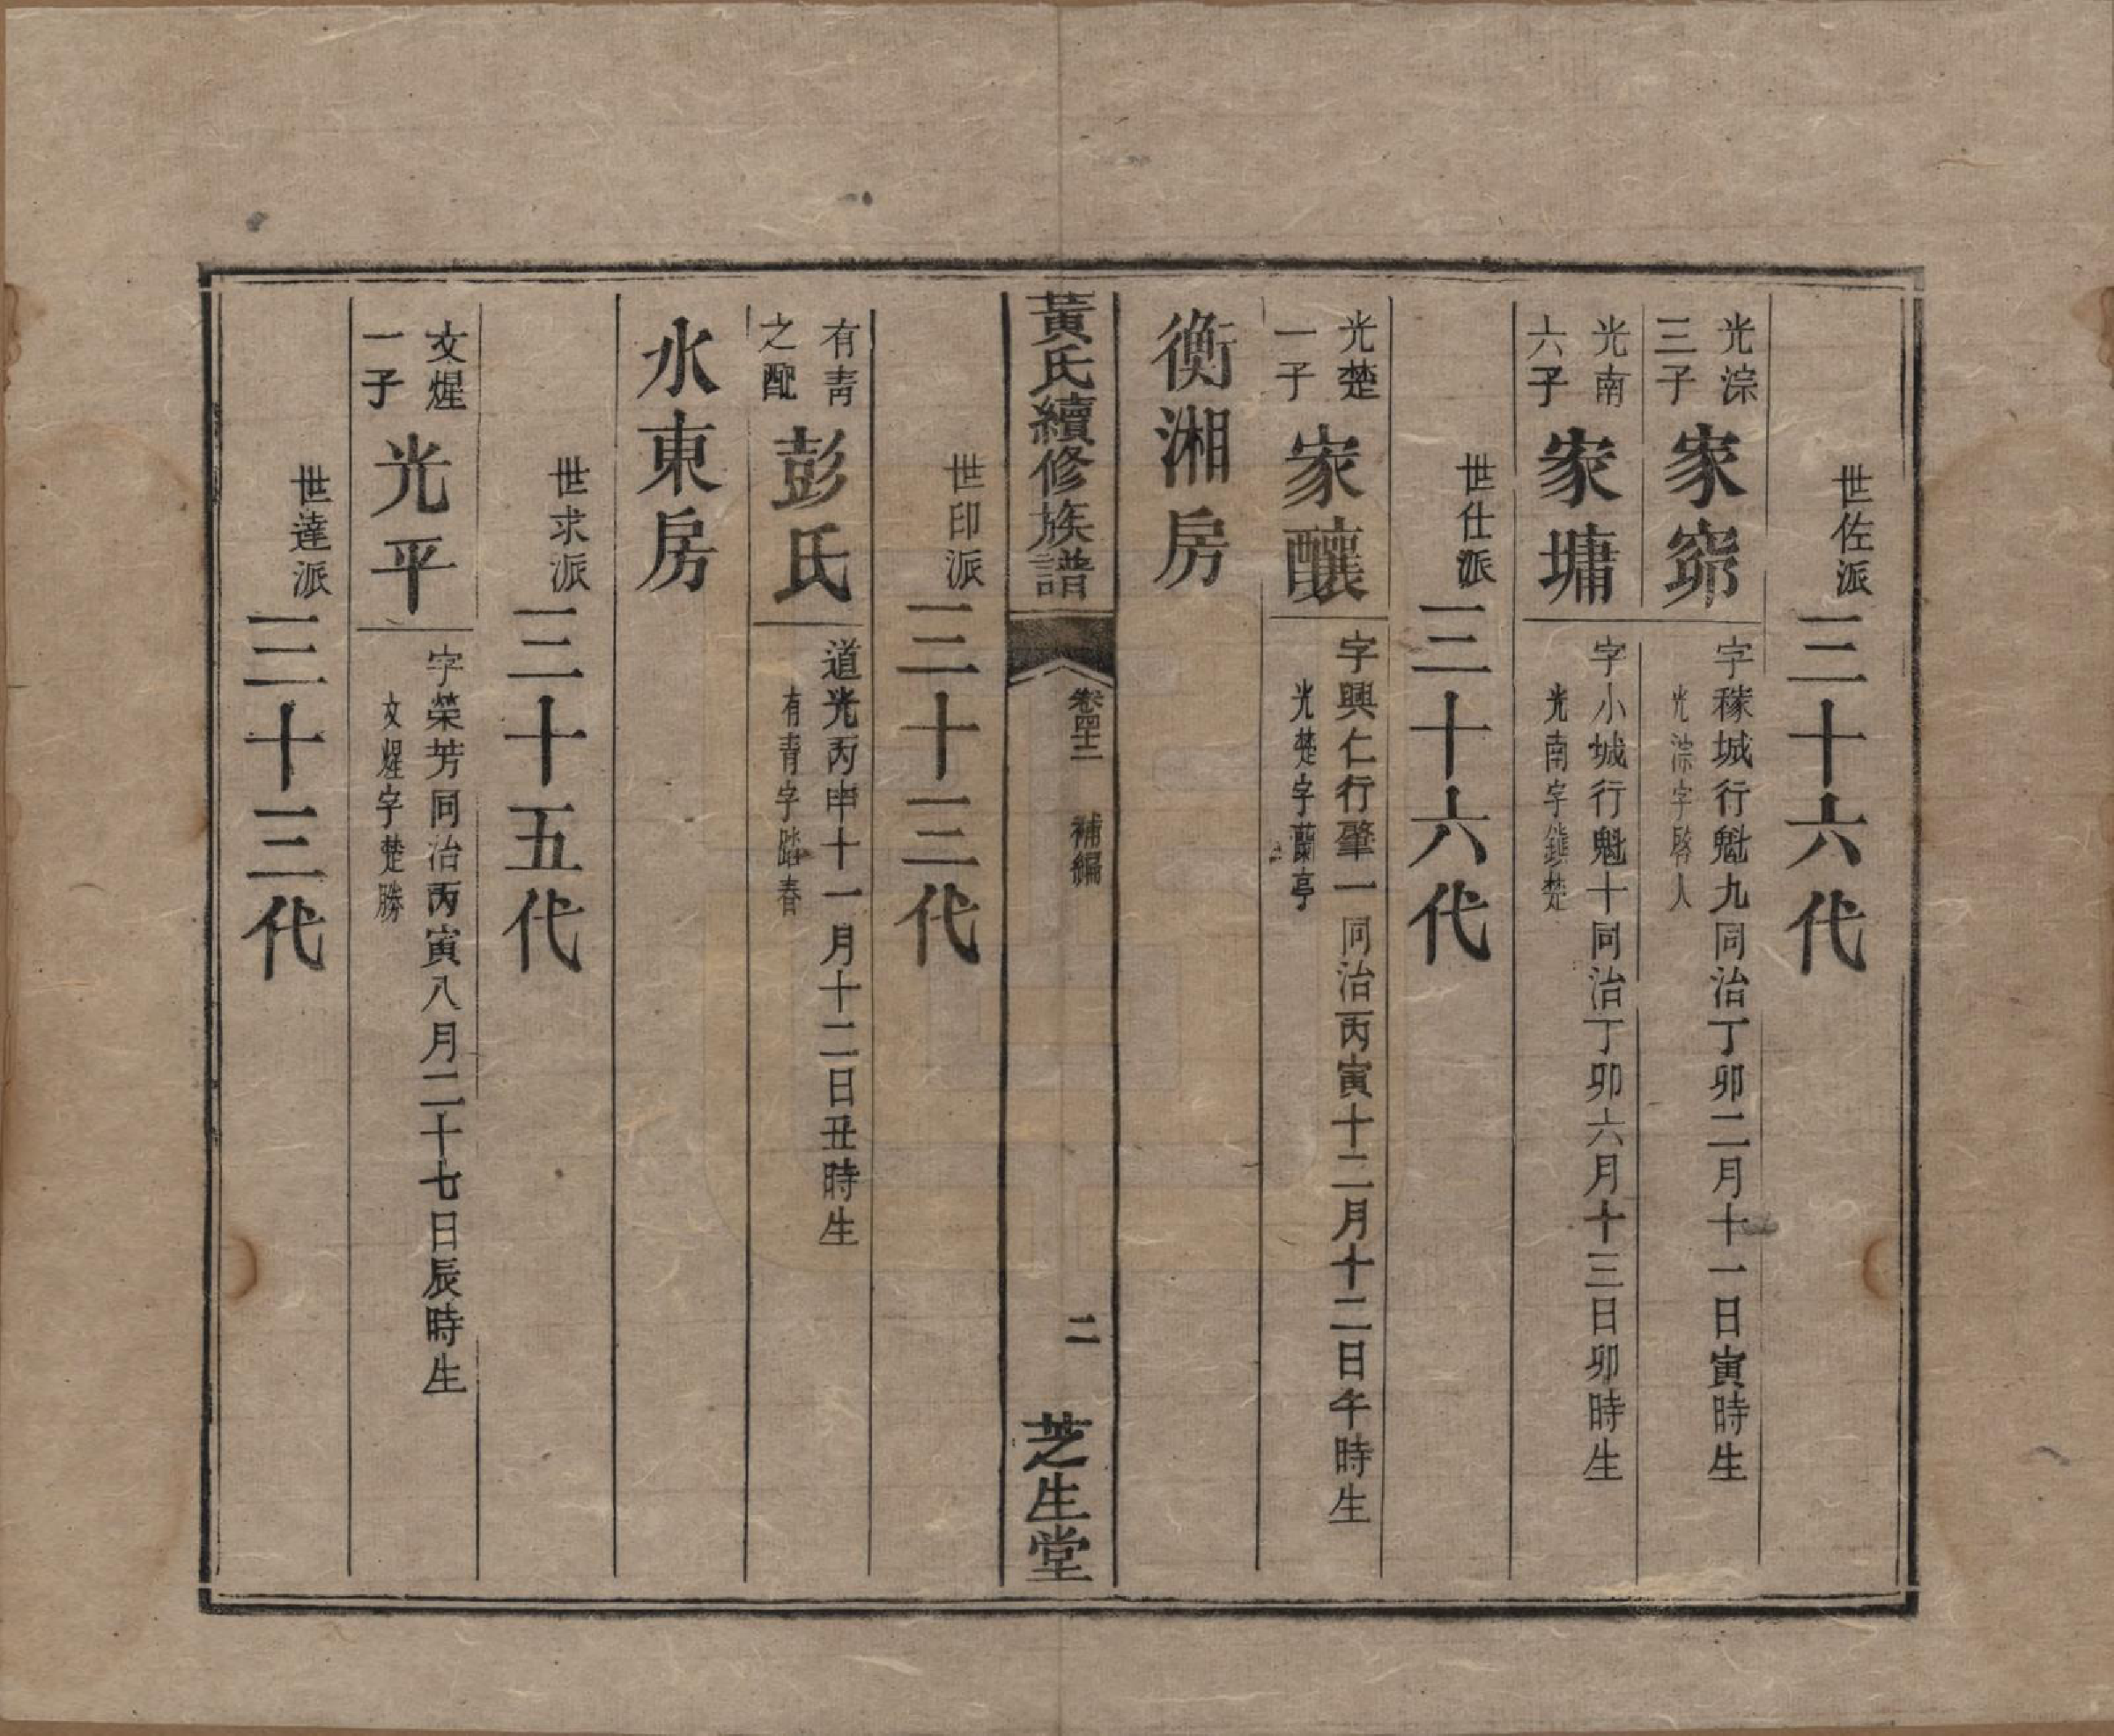 世佐派三十六代
光淙三子 家窮 字稼城行魁九同治丁卯二月十一日寅時生
光淙字啓人
光南六子 家墉 字小城行魁十同治丁卯六月十三日卯時生
光南字鏡楚
世仕派三十六代
光楚一子 家釀 字興仁行肇一同治丙寅十二月十二日午時生
光楚字蘭亭
衡湘房
黃氏續修族譜 卷四十二 補編 二 芝生堂
世印派三十三代
有青之配 彭氏 道光丙申十一月十二日丑時生
有青字踏春
水東房
世求派三十五代
文煋一子 光平 字榮芳同治丙寅八月二十七日辰時生
文煋字楚勝
世達派三十三代